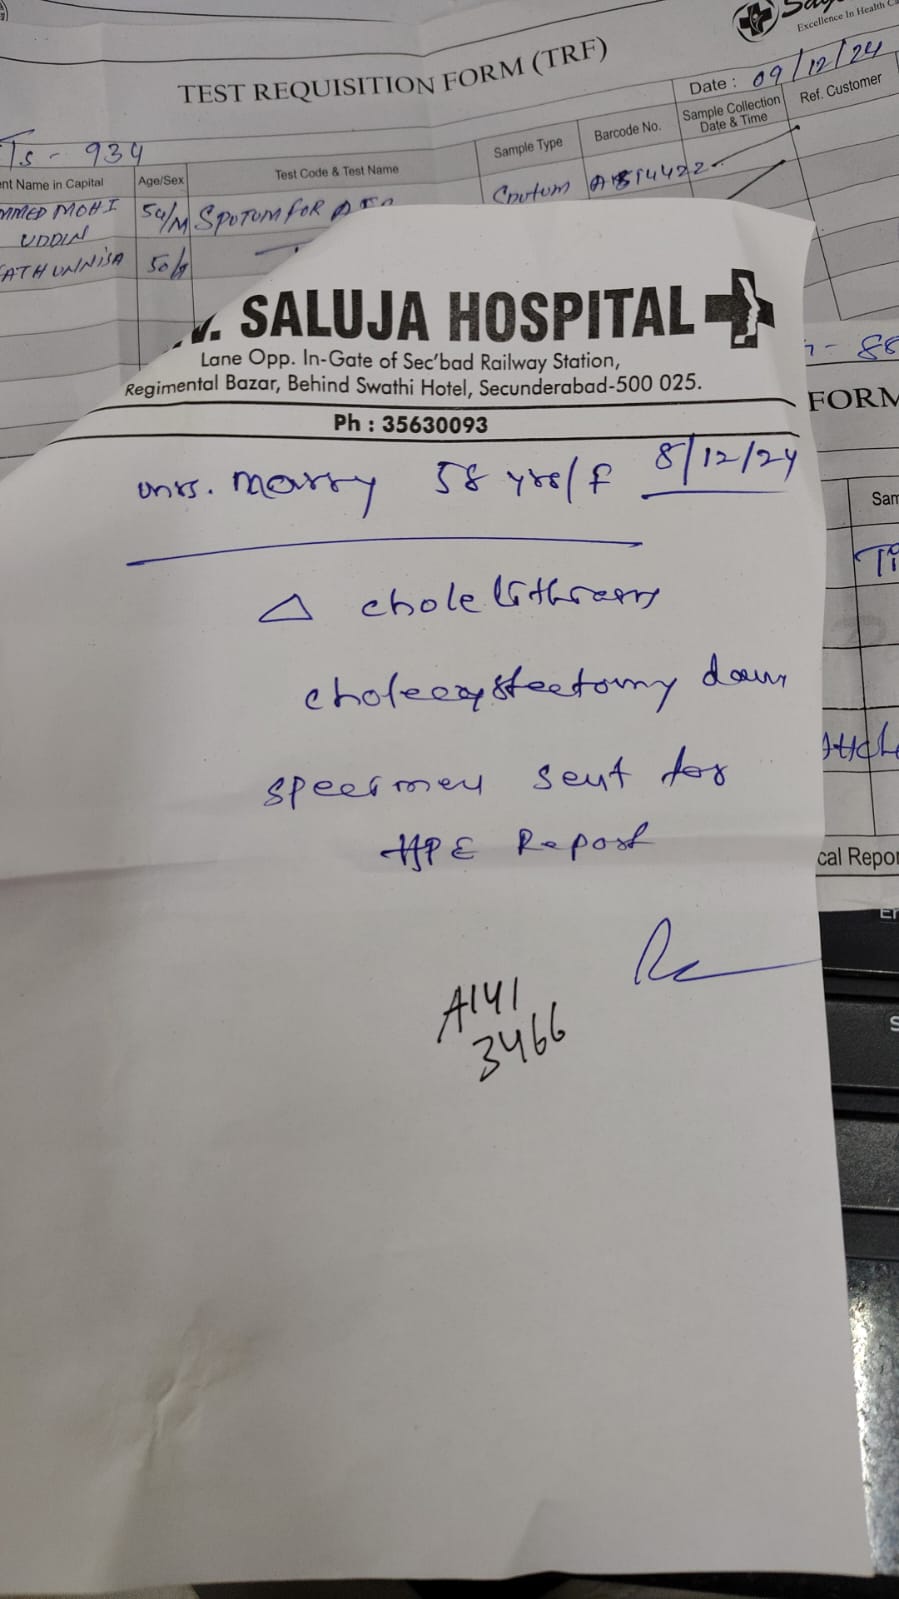 Excellence In Health Ca
TEST REQUISITION FORM (TRF)
Date : 09/12/24
Ts - 934
nt Name in Capital
Age/Sex
Test Code & Test Name
Sample Type
Barcode No.
Sample Collection
Date & Time
Ref. Customer
MMED MOHI
UDDIN
54/M
SPUTUM FOR
Sputum
ATHUNNISA
50/
. SALUJA HOSPITAL
Lane Opp. In-Gate of Sec'bad Railway Station,
Regimental Bazar, Behind Swathi Hotel, Secunderabad-500 025.
Ph : 35630093
- 88
FORM
Sam
cal Repor
mrs. Marry 58 yrs/f 8/12/24
△ cholelithiasis
cholecystectomy done
specimen sent for
HPE Report
A141
3466